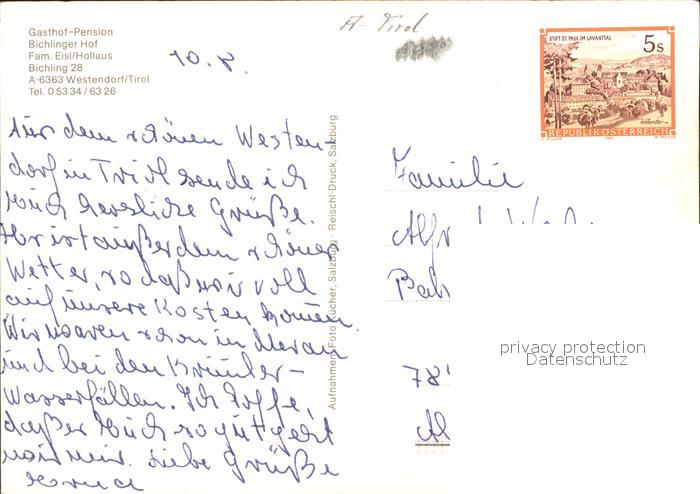 Gasthof-Pension
Bichlinger Hof
Fam. Eisl/Hollaus
Bichling 28
A-6363 Westendorf/Tirol
Tel. 0 53 34 / 63 26
10. 8.
A- Tirol
STIFT ST. PAUL IM LAVANTTAL
5s
REPUBLIK ÖSTERREICH
Aus dem schönen Westen-
dorf in Tirol sende ich
Euch herzliche Grüße.
Hier ist außerdem schönes
Wetter, so daß wir voll
auf unsere Kosten kommen.
Wir waren schon in Meran
und bei den Krimler-
Wasserfällen. Ich hoffe,
daß es Euch so gut geht
wie mir. Liebe Grüße
Aufnahmen: Foto Kücher, Salzburg · Reischl-Druck, Salzburg
Familie
Alfr
Bah
78
privacy protection
Datenschutz